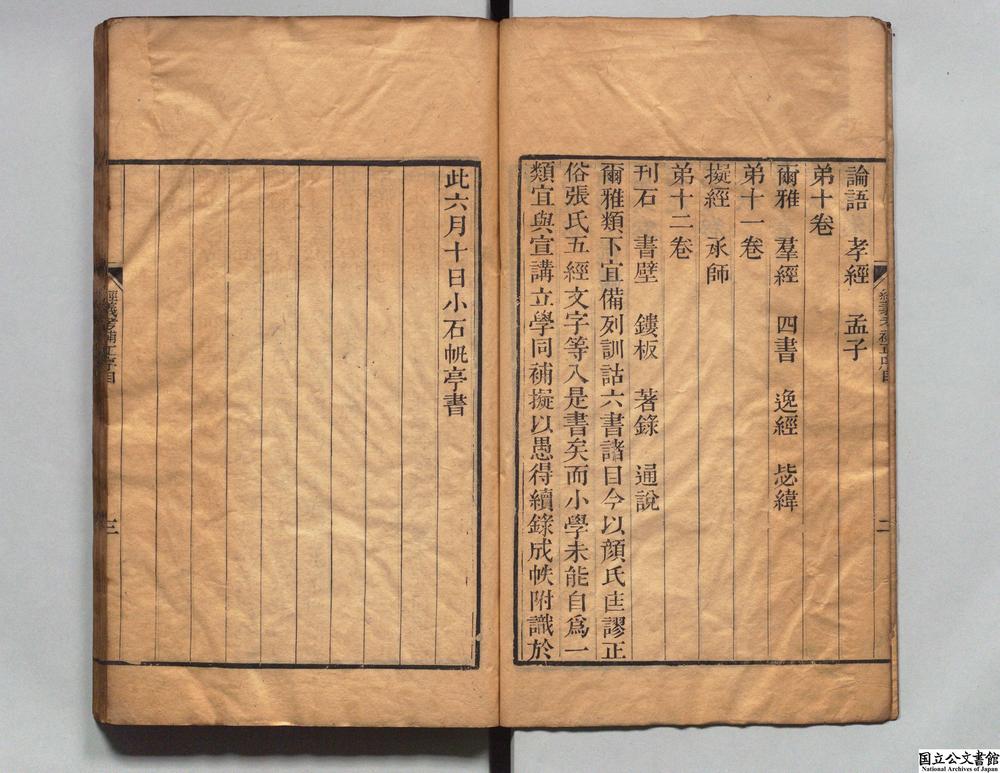 論語 孝經 孟子
弟十卷
爾雅 羣經 四書 逸經 毖緯
弟十一卷
擬經 承師
弟十二卷
刊石 書壁 鏤板 著錄 通說
爾雅類下宜備列訓詁六書諸目今以顏氏匡謬正
俗張氏五經文字等入是書矣而小學未能自爲一
類宜與宣講立學同補擬以愚得續錄成帙附識於
經義考補正序目
二
此六月十日小石帆亭書
經義考補正序目
三
国立公文書館
National Archives of Japan